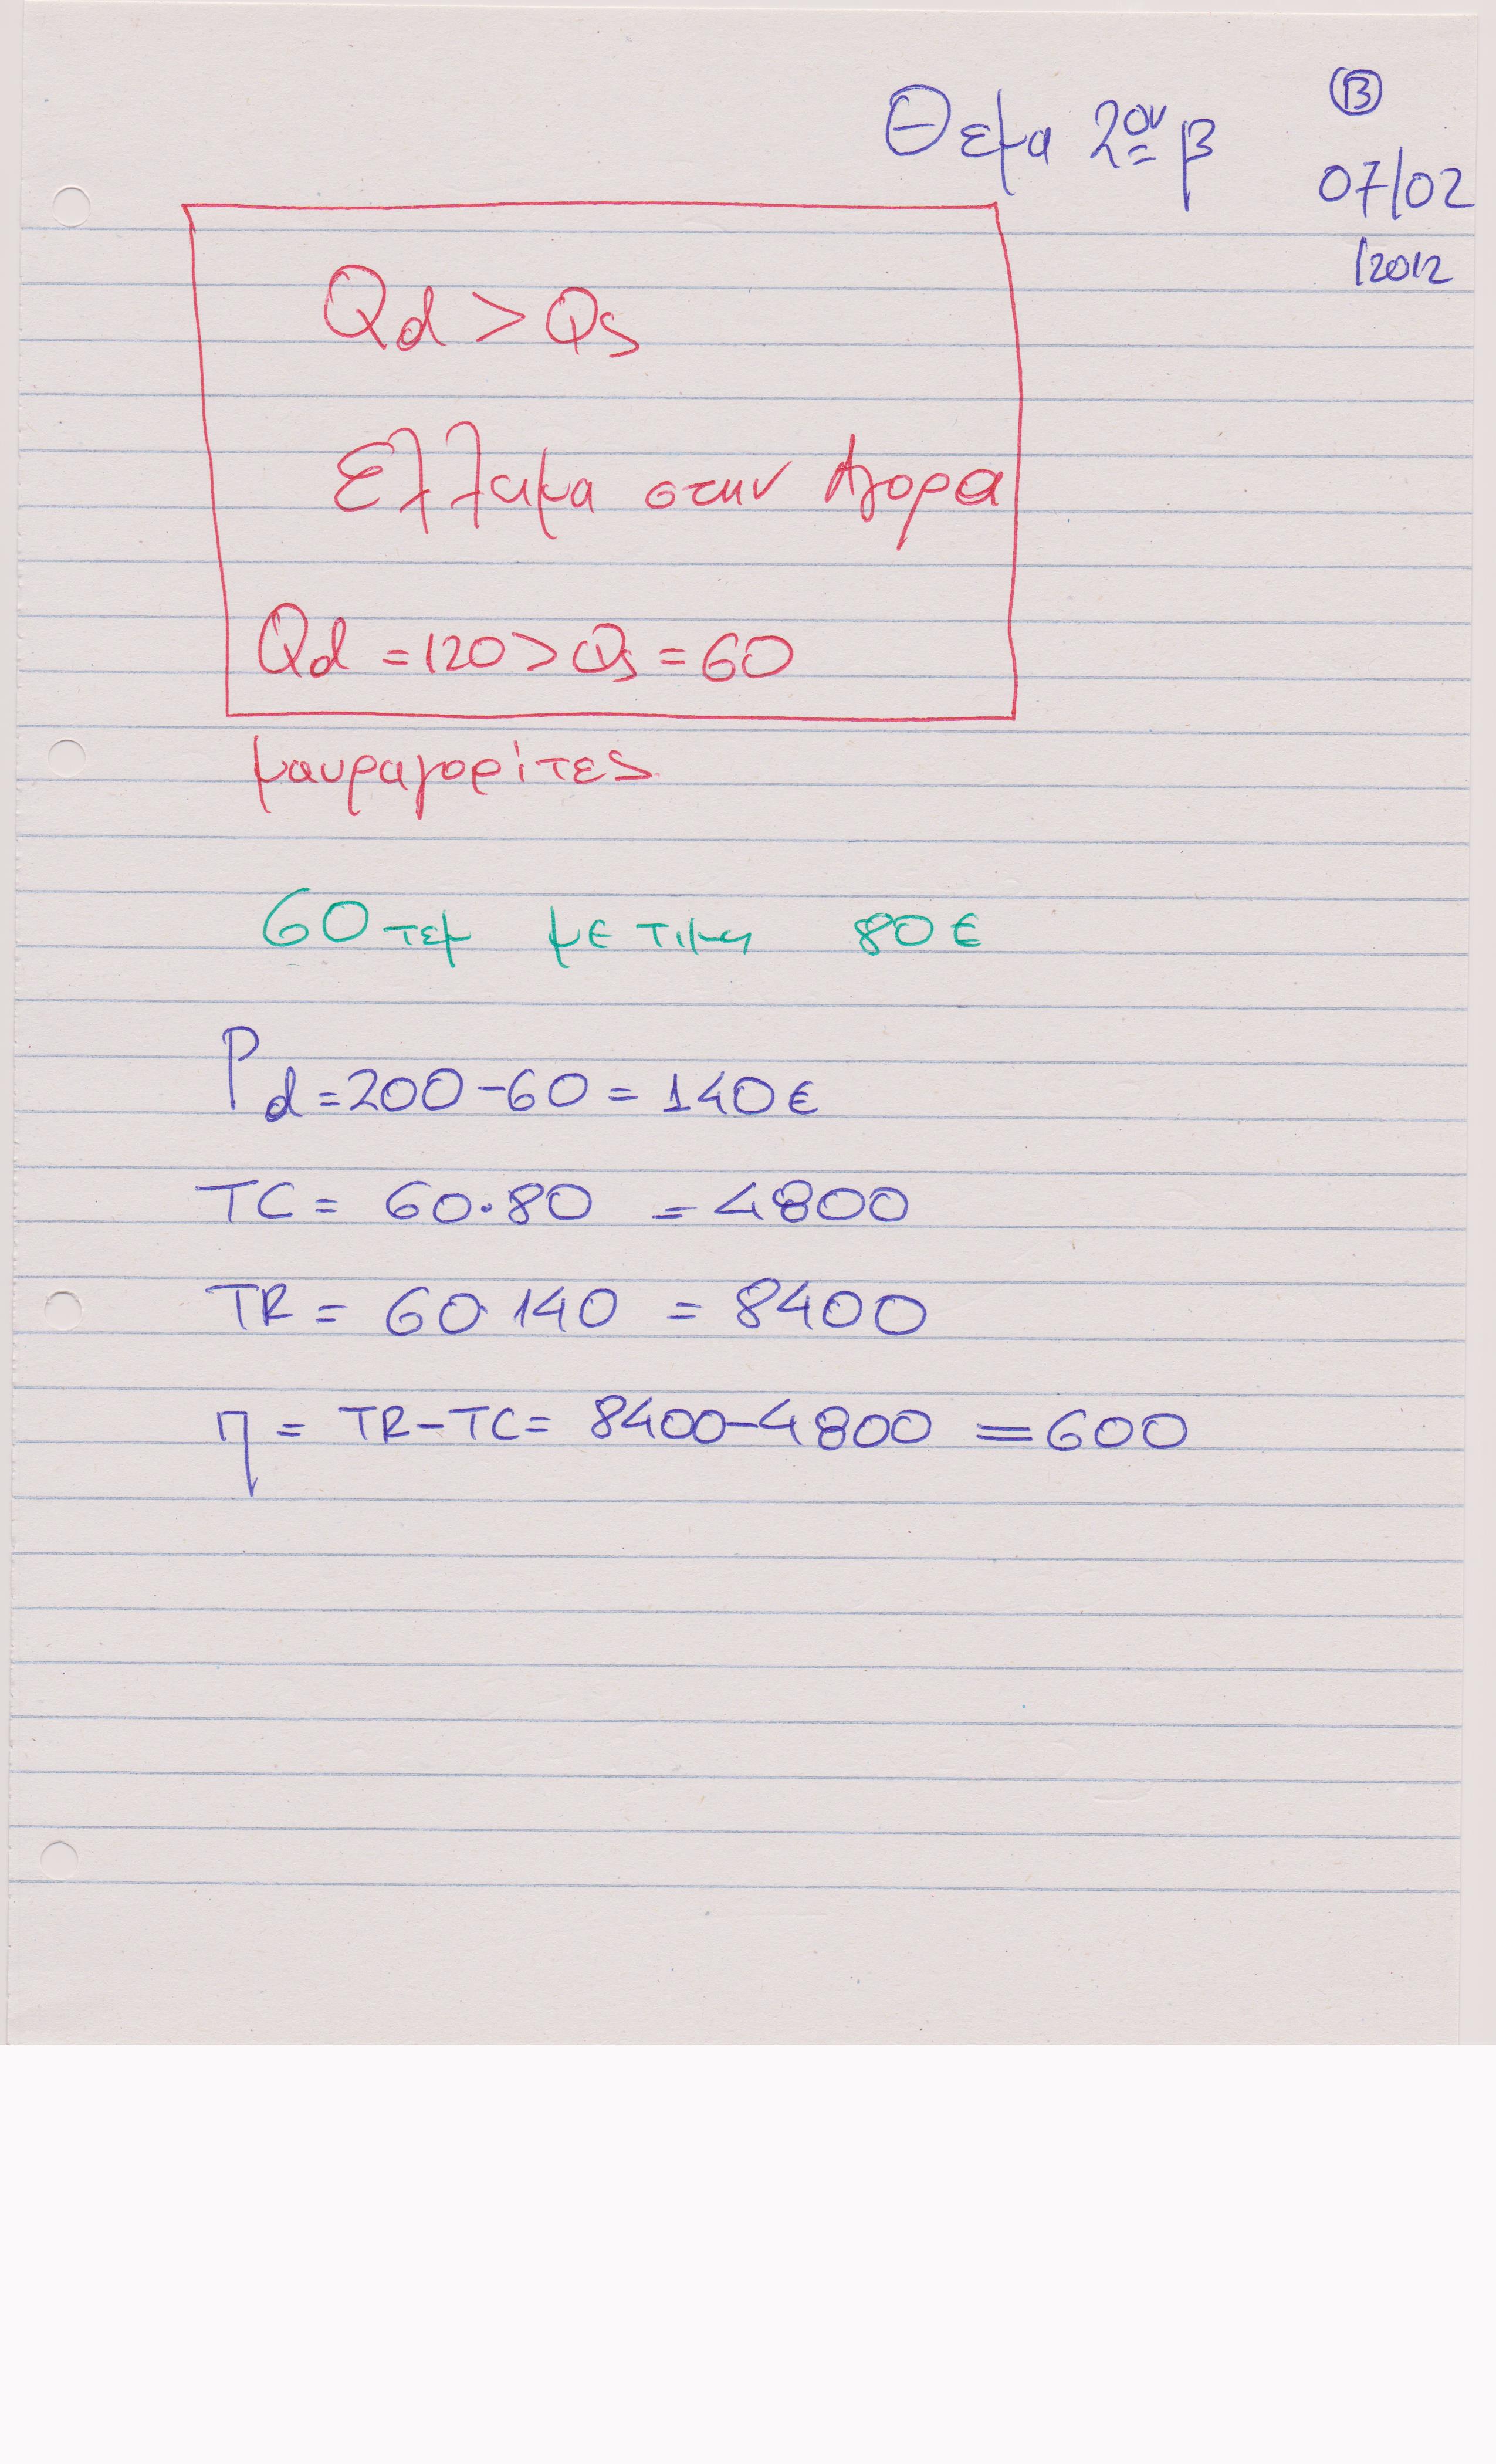 Θεμα 2ον β
Β
07/02
/2012
Qd > Qs
Ελλειμα στην Αγορα
Qd = 120 > Qs = 60
μαυραγορίτες
60 τεμ με τιμη 80 €
Pd = 200 - 60 = 140 €
TC = 60 · 80 = 4800
TR = 60 · 140 = 8400
η = TR - TC = 8400 - 4800 = 600